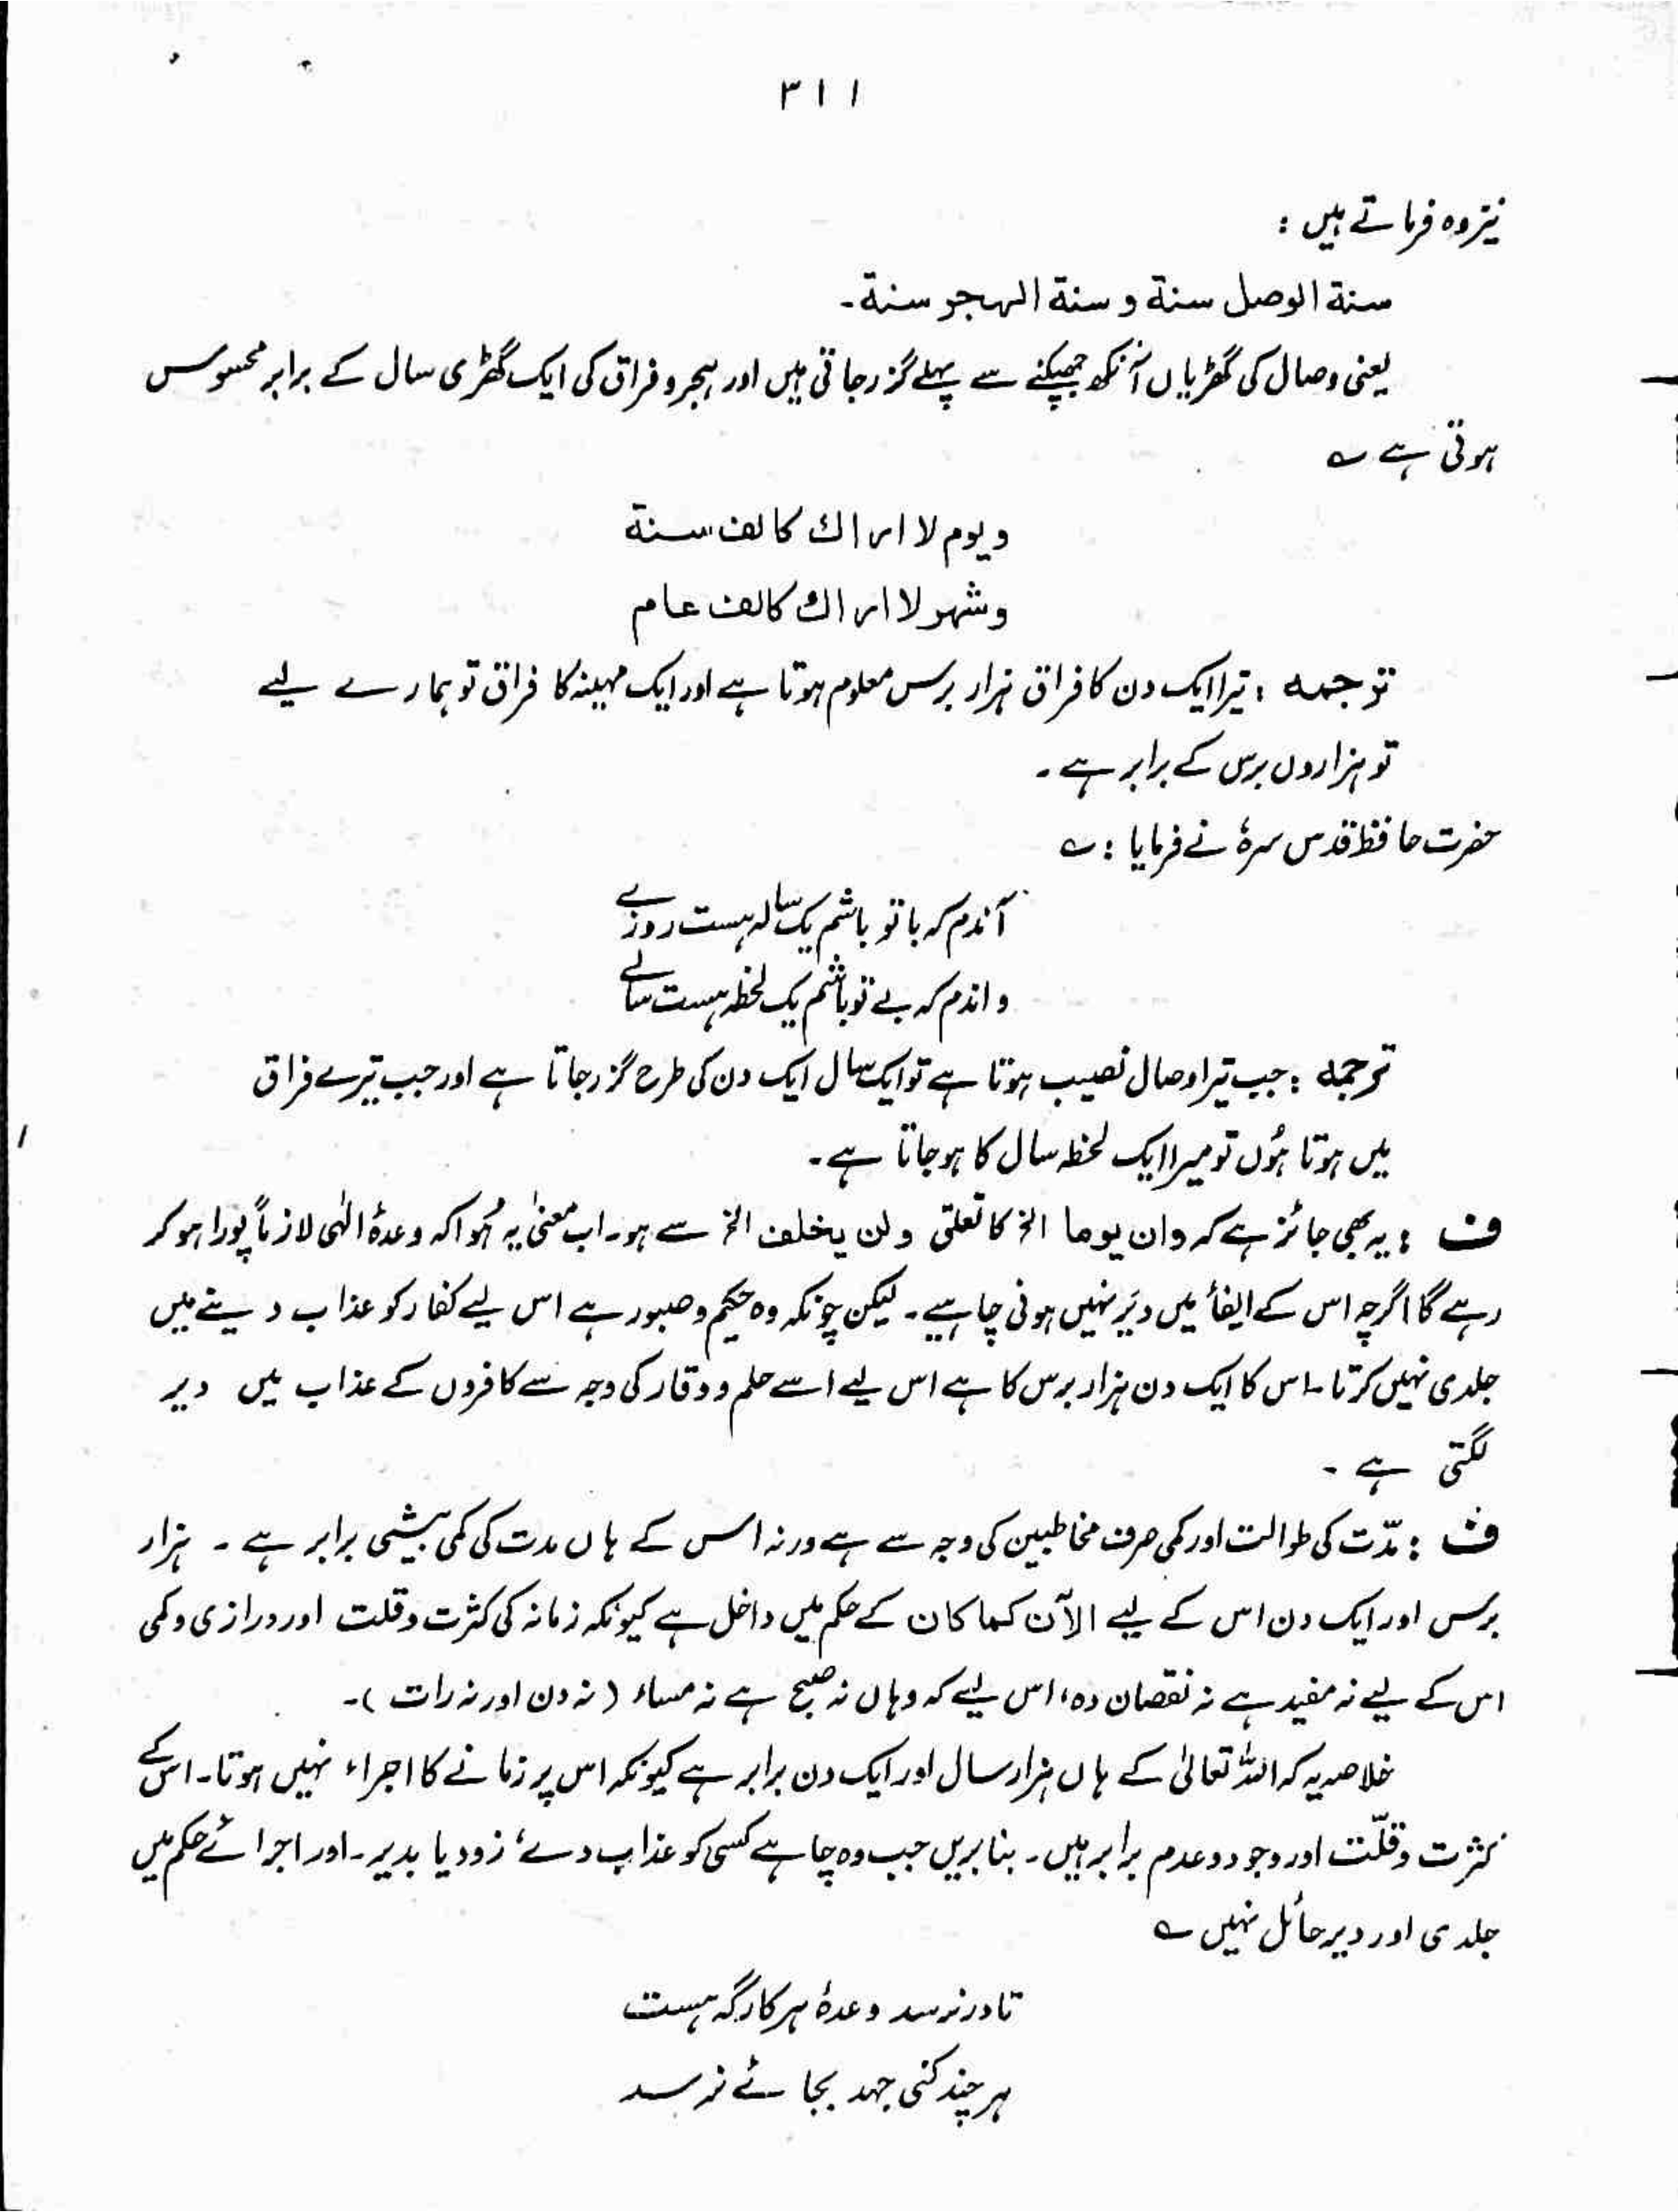 ۳۱۱
نیز وہ فرماتے ہیں :
سنة الوصل سنة و سنة الهجر سنة۔
یعنی وصال کی گھڑیاں آنکھ جھپکنے سے پہلے گزر جاتی ہیں اور ہجر و فراق کی ایک گھڑی سال کے برابر محسوس
ہوتی ہے ؎
و يوم لا اراك كالف سنة
و شهر لا اراك كالف عام
ترجمہ : تیرا ایک دن کا فراق ہزار برس معلوم ہوتا ہے اور ایک مہینہ کا فراق تو ہمارے لیے
تو ہزاروں برس کے برابر ہے ۔
حضرت حافظ قدس سرہٗ نے فرمایا : ؎
آندم کہ با تو باشم یک سالہ ہست روزے
واندم کہ بے تو باشم یک لحظہ ہست سالے
ترجمہ : جب تیرا وصال نصیب ہوتا ہے تو ایک سال ایک دن کی طرح گزر جاتا ہے اور جب تیرے فراق
میں ہوتا ہُوں تو میرا ایک لحظہ سال کا ہو جاتا ہے۔
ف : یہ بھی جائز ہے کہ وان یوما الخ کا تعلق ولن یخلف الخ سے ہو۔ اب معنیٰ یہ ہُوا کہ وعدۂ الٰہی لازماً پورا ہو کر
رہے گا اگرچہ اس کے ایفأ میں دیر نہیں ہونی چاہیے ۔ لیکن چونکہ وہ حکیم و صبور ہے اس لیے کفار کو عذاب دینے میں
جلدی نہیں کرتا۔ اس کا ایک دن ہزار برس کا ہے اس لیے اسے حلم و وقار کی وجہ سے کافروں کے عذاب میں دیر
لگتی ہے ۔
ف : مدّت کی طوالت اور کمی صرف مخاطبین کی وجہ سے ہے ورنہ اس کے ہاں مدت کی کمی بیشی برابر ہے ۔ ہزار
برس اور ایک دن اس کے لیے الآن کما کان کے حکم میں داخل ہے کیونکہ زمانہ کی کثرت و قلت اور درازی و کمی
اس کے لیے نہ مفید ہے نہ نقصان دہ، اس لیے کہ وہاں نہ صبح ہے نہ مساء ( نہ دن اور نہ رات )۔
خلاصہ یہ کہ اللہ تعالیٰ کے ہاں ہزار سال اور ایک دن برابر ہے کیونکہ اس پر زمانے کا اجراء نہیں ہوتا۔ اس کے
کثرت و قلّت اور وجود و عدم برابر ہیں ۔ بنا بریں جب وہ چاہے کسی کو عذاب دے، زود یا بدیر ۔ اور اجرائے حکم میں
جلدی اور دیر حائل نہیں ؎
تا در نرسد وعدۂ ہر کار گہ ہست
ہر چند کنی جہد بجائے نرسد